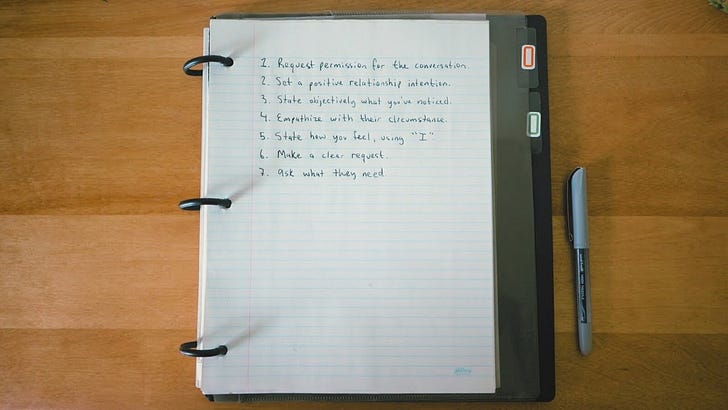 1. Request permission for the conversation.
2. Set a positive relationship intention.
3. State objectively what you've noticed.
4. Empathize with their circumstance.
5. State how you feel, using "I"
6. Make a clear request.
7. Ask what they need